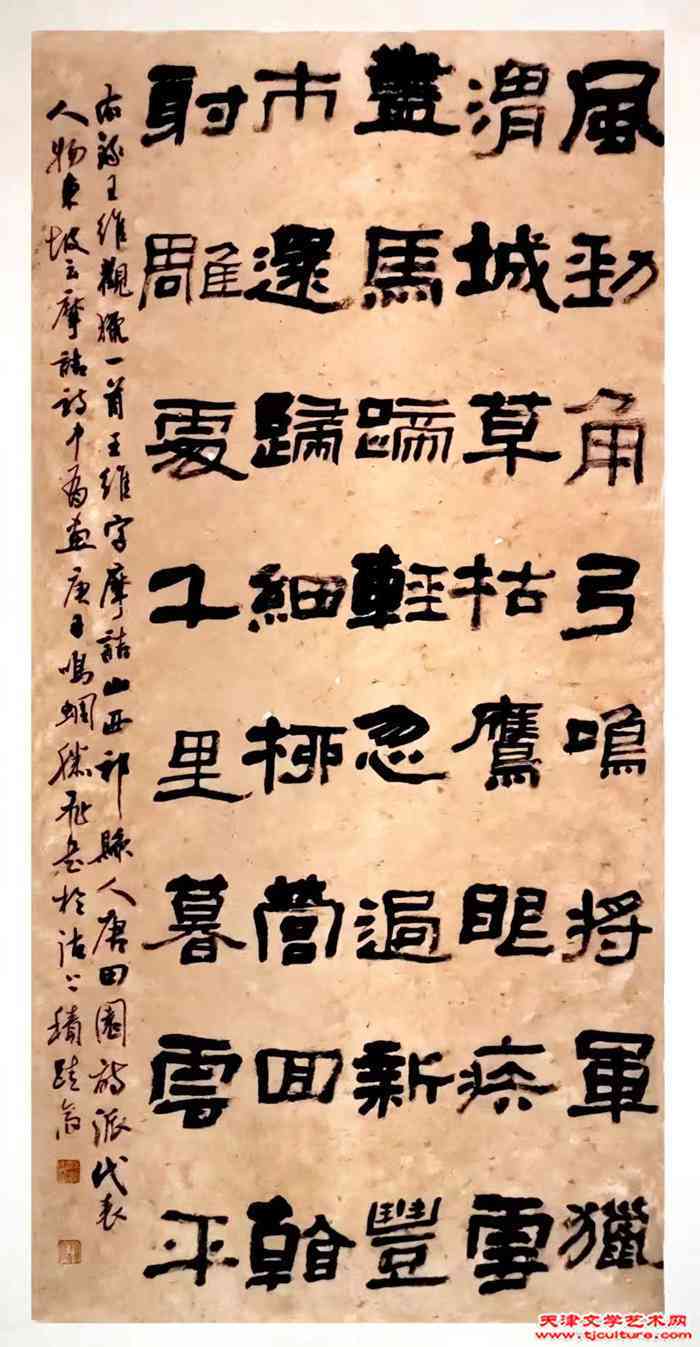 風勁角弓鳴將軍獵
渭城草枯鷹眼疾雪
盡馬蹄輕忽過新豐
市還歸細柳營回看
射雕處千里暮雲平
右錄王維觀獵一首王維字摩詰山西祁縣人唐田園詩派代表
人物東坡云摩詰詩中有畫庚子鳴蜩於沽上積跬斋
天津文学艺术网
www.tjculture.com